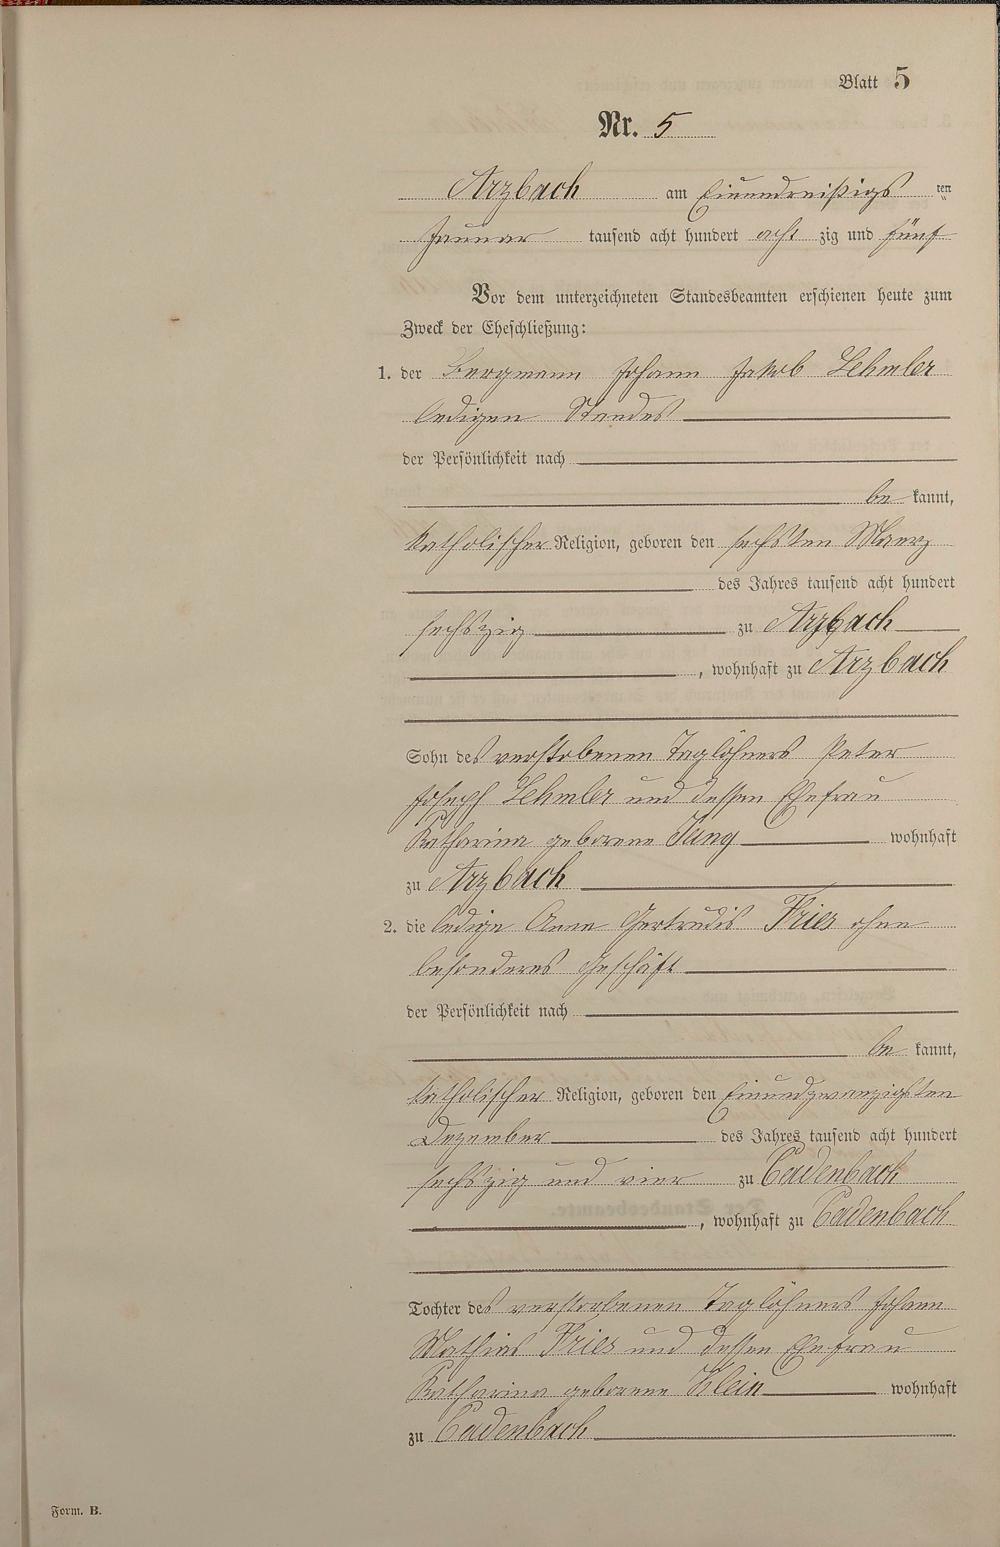 Blatt 5
Nr. 5
Arzbach am Einunddreißigs ten
Januar tausend acht hundert acht zig und fünf
Vor dem unterzeichneten Standesbeamten erschienen heute zum
Zweck der Eheschließung:
1. der Bergmann Johann Jakob Lehmler
ledigen Standes
der Persönlichkeit nach
be kannt,
katholischer Religion, geboren den sechsten Maerz
des Jahres tausend acht hundert
sechszig zu Arzbach
, wohnhaft zu Arzbach
Sohn des verstorbenen Taglöhners Peter
Joseph Lehmler und dessen Ehefrau
Katharina geborene Jung wohnhaft
zu Arzbach
2. die ledige Anna Gertrudis Fries ohne
besonderes Geschäft
der Persönlichkeit nach
be kannt,
katholischer Religion, geboren den Einundzwanzigsten
Dezember des Jahres tausend acht hundert
sechszig und vier zu Cadenbach
, wohnhaft zu Cadenbach
Tochter des verstorbenen Taglöhners Johann
Mathias Fries und dessen Ehefrau
Katharina geborene Klein wohnhaft
zu Cadenbach
Form. B.